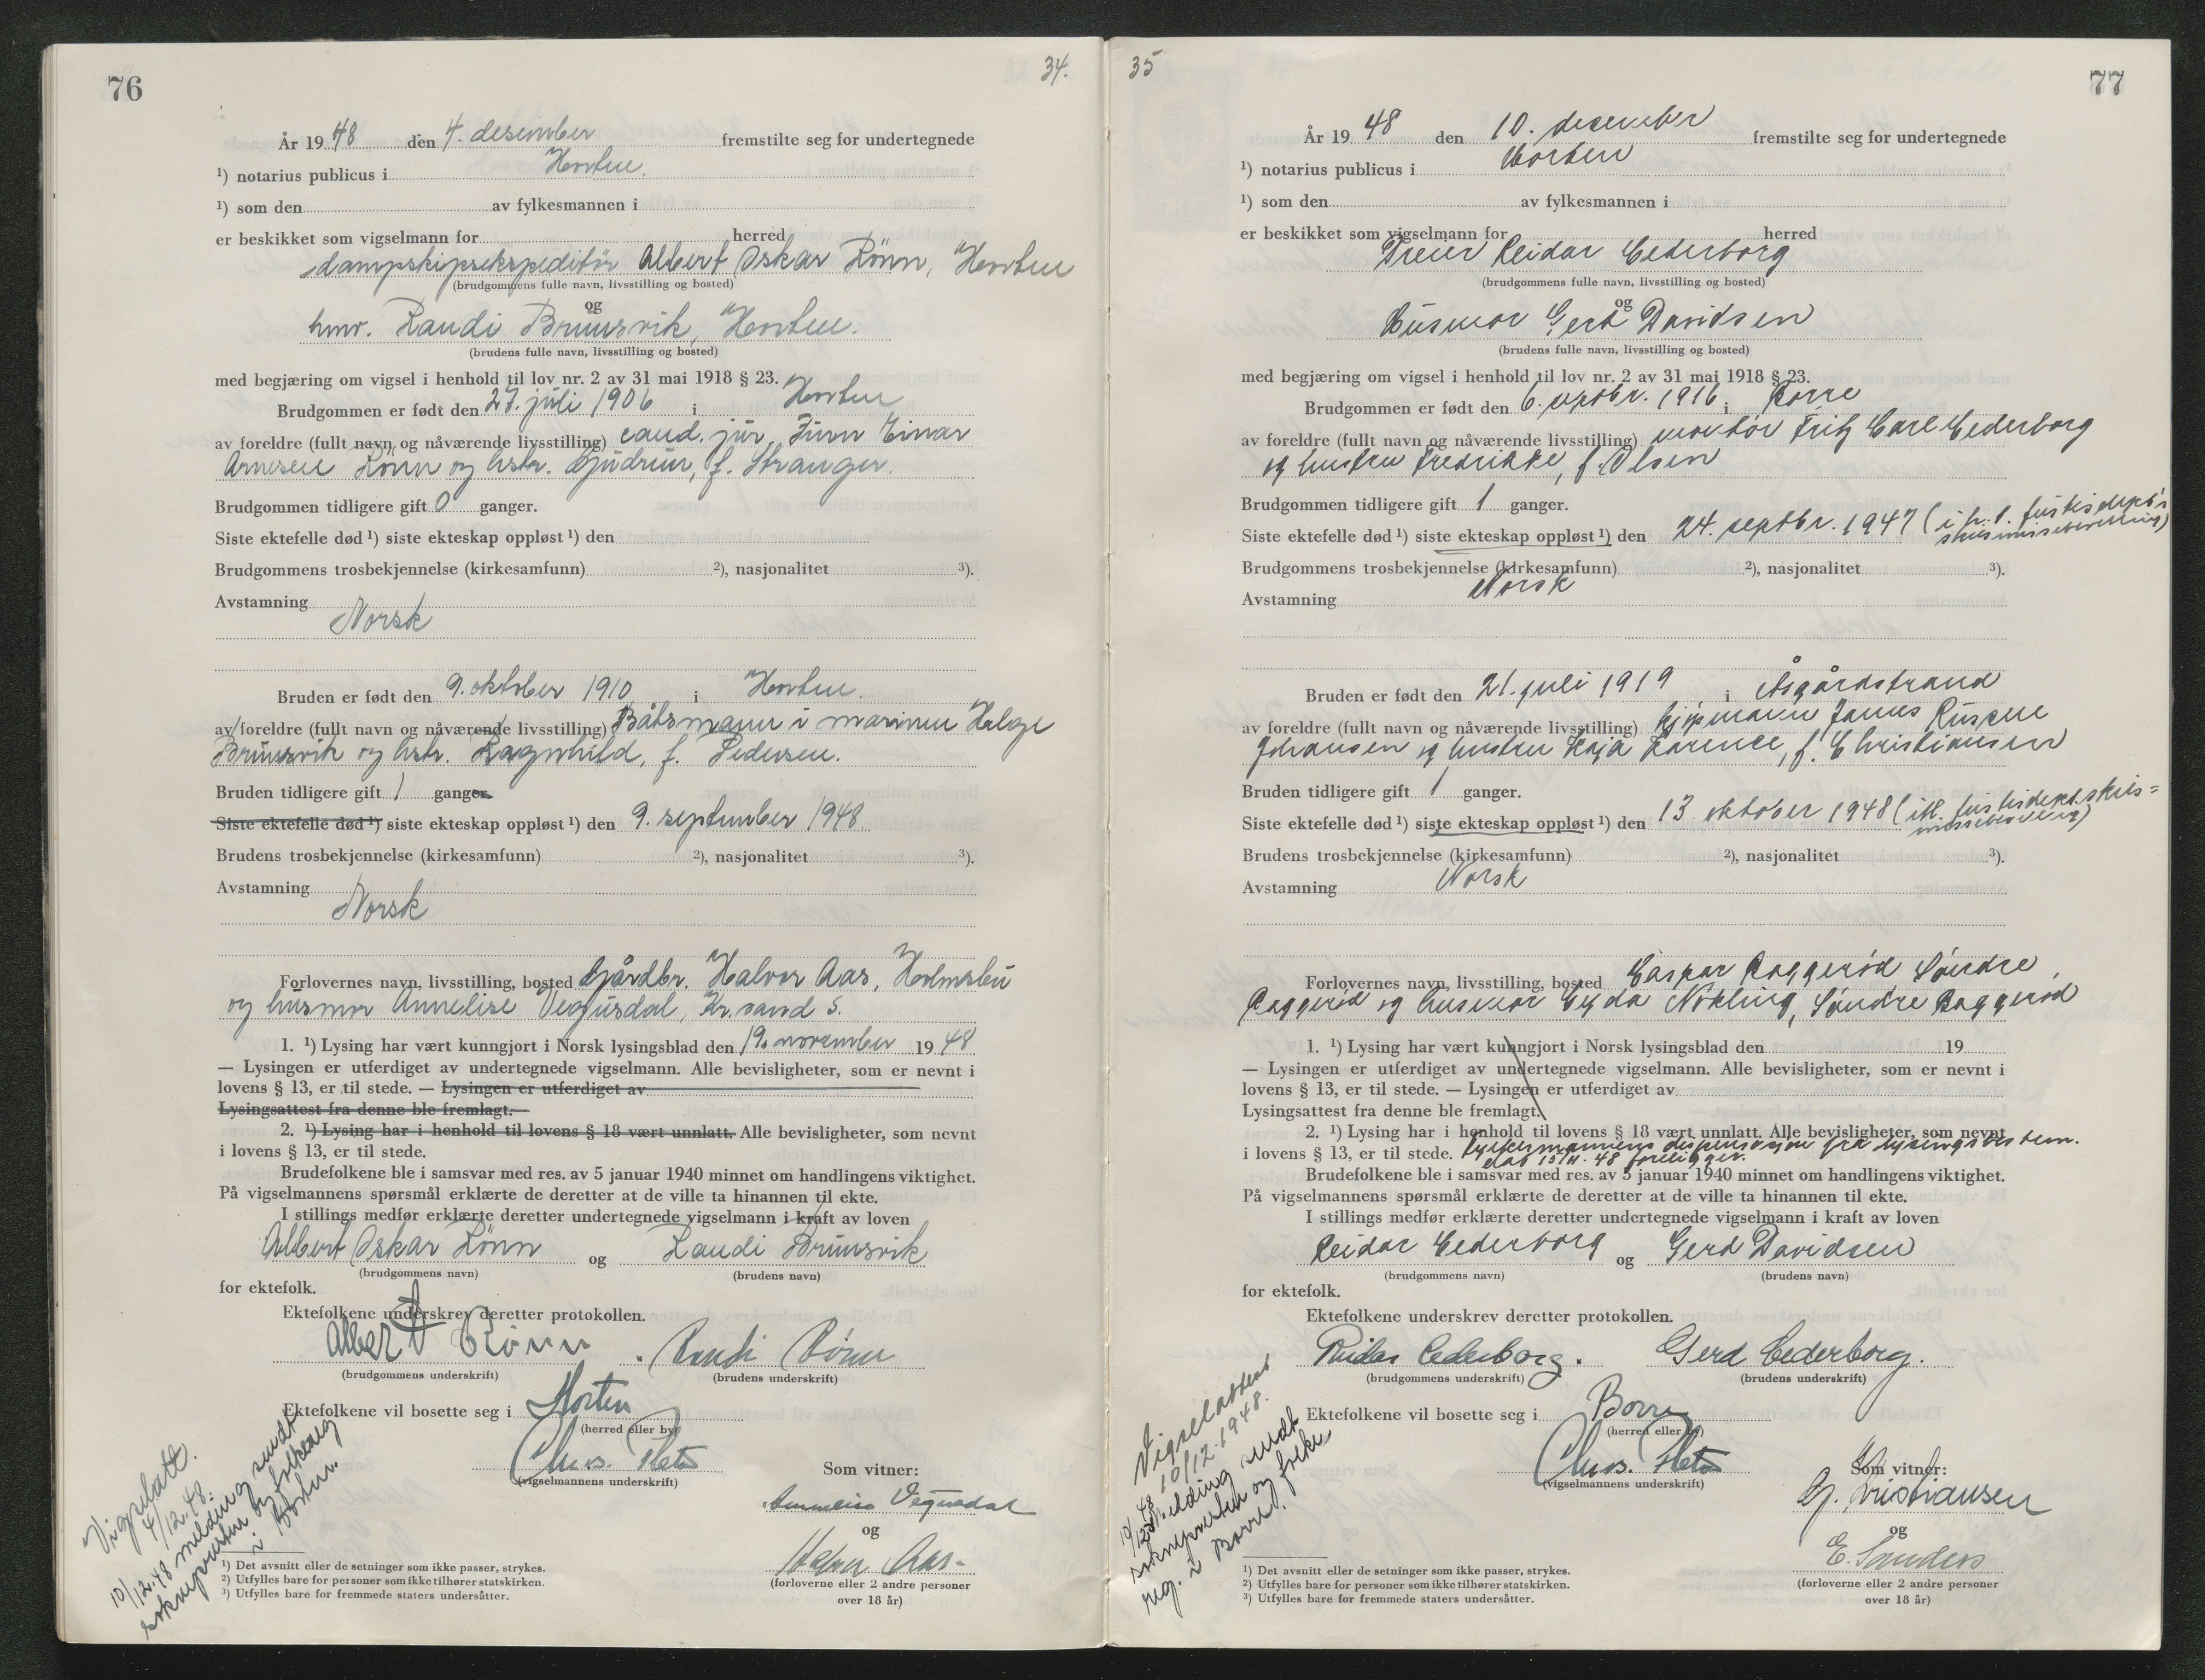 76
34.
År 1948 den 4. desember fremstilte seg for undertegnede
¹) notarius publicus i Horten.
¹) som den av fylkesmannen i
er beskikket som vigselmann for herred
dampskipsekspeditör Albert Oskar Rönn, Horten
(brudgommens fulle navn, livsstilling og bosted)
og
hmv. Randi Brunsvik, Horten.
(brudens fulle navn, livsstilling og bosted)
med begjæring om vigsel i henhold til lov nr. 2 av 31 mai 1918 § 23.
Brudgommen er født den 27. juli 1906 i Horten
av foreldre (fullt navn og nåværende livsstilling) cand. jur. Finn Einar
Arnesen Rönn og hstr. Gudrun, f. Stranger.
Brudgommen tidligere gift 0 ganger.
Siste ektefelle død ¹) siste ekteskap oppløst ¹) den
Brudgommens trosbekjennelse (kirkesamfunn) ²), nasjonalitet ³).
Avstamning
Norsk
Bruden er født den 9. oktober 1910 i Horten.
av foreldre (fullt navn og nåværende livsstilling) Båtsmann i marinen Helge
Brunsvik og hstr. Ragnhild, f. Pedersen.
Bruden tidligere gift 1 ganger.
Siste ektefelle død ¹) siste ekteskap oppløst ¹) den 9. september 1948
Brudens trosbekjennelse (kirkesamfunn) ²), nasjonalitet ³).
Avstamning
Norsk
Forlovernes navn, livsstilling, bosted Gårdbr. Halvor Aas, Holmsbu
og husmor Annelise Vegusdal, Kr.sand S.
1. ¹) Lysing har vært kunngjort i Norsk lysingsblad den 19. november 1948
— Lysingen er utferdiget av undertegnede vigselmann. Alle bevisligheter, som er nevnt i
lovens § 13, er til stede. — Lysingen er utferdiget av
Lysingsattest fra denne ble fremlagt.
2. ¹) Lysing har i henhold til lovens § 18 vært unnlatt. Alle bevisligheter, som nevnt
i lovens § 13, er til stede.
Brudefolkene ble i samsvar med res. av 5 januar 1940 minnet om handlingens viktighet.
På vigselmannens spørsmål erklærte de deretter at de ville ta hinannen til ekte.
I stillings medfør erklærte deretter undertegnede vigselmann i kraft av loven
Albert Oskar Rönn og Randi Brunsvik
(brudgommens navn) (brudens navn)
for ektefolk.
Ektefolkene underskrev deretter protokollen.
Albert Rönn Randi Rönn
(brudgommens underskrift) (brudens underskrift)
Ektefolkene vil bosette seg i Horten
(herred eller by)
(vigselmannens underskrift)
Som vitner:
Annelise Vegusdal
og
Halvor Aas
(forloverne eller 2 andre personer
over 18 år)
Vigselatt.
4/12.48.
10/12.48 melding sendt
sokneprester og folkereg
i Horten.
¹) Det avsnitt eller de setninger som ikke passer, strykes.
²) Utfylles bare for personer som ikke tilhører statskirken.
³) Utfylles bare for fremmede staters undersåtter.
35
77
År 1948 den 10. desember fremstilte seg for undertegnede
¹) notarius publicus i Horten
¹) som den av fylkesmannen i
er beskikket som vigselmann for herred
Dreier Reidar Cederborg
(brudgommens fulle navn, livsstilling og bosted)
og
Husmor Gerd Davidsen
(brudens fulle navn, livsstilling og bosted)
med begjæring om vigsel i henhold til lov nr. 2 av 31 mai 1918 § 23.
Brudgommen er født den 6. septbr. 1916 i Borre
av foreldre (fullt navn og nåværende livsstilling) montör Fritz Carl Cederborg
og hustru Fredrikke, f. Olsen
Brudgommen tidligere gift 1 ganger.
Siste ektefelle død ¹) siste ekteskap oppløst ¹) den 24. septbr. 1947 (i h. t. justisdept's
skilsmissebevilling)
Brudgommens trosbekjennelse (kirkesamfunn) ²), nasjonalitet ³).
Avstamning Norsk
Bruden er født den 21. juli 1919 i Åsgårdstrand
av foreldre (fullt navn og nåværende livsstilling) kjöpmann James
Johansen og hustru Kaja Larence, f. Christiansen
Bruden tidligere gift 1 ganger.
Siste ektefelle død ¹) siste ekteskap oppløst ¹) den 13 oktober 1948 (ifll. justisdept. skils=
missebevilling)
Brudens trosbekjennelse (kirkesamfunn) ²), nasjonalitet ³).
Avstamning Norsk
Forlovernes navn, livsstilling, bosted Caspar Baggeröd Söndre
Baggeröd og husmor Nökling, Söndre Baggeröd
1. ¹) Lysing har vært kunngjort i Norsk lysingsblad den 19
— Lysingen er utferdiget av undertegnede vigselmann. Alle bevisligheter, som er nevnt i
lovens § 13, er til stede. — Lysingen er utferdiget av
Lysingsattest fra denne ble fremlagt.
2. ¹) Lysing har i henhold til lovens § 18 vært unnlatt. Alle bevisligheter, som nevnt
i lovens § 13, er til stede. Fylkesmannens dispensasjon fra lysingsbestem.
dat 15/11. 48 foreligger.
Brudefolkene ble i samsvar med res. av 5 januar 1940 minnet om handlingens viktighet.
På vigselmannens spørsmål erklærte de deretter at de ville ta hinannen til ekte.
I stillings medfør erklærte deretter undertegnede vigselmann i kraft av loven
Reidar Cederborg og Gerd Davidsen
(brudgommens navn) (brudens navn)
for ektefolk.
Ektefolkene underskrev deretter protokollen.
Reidar Cederborg. Gerd Cederborg.
(brudgommens underskrift) (brudens underskrift)
Ektefolkene vil bosette seg i Borre
(herred eller by)
(vigselmannens underskrift)
Som vitner:
G. Kristiansen
og
E. Sanders
(forloverne eller 2 andre personer
over 18 år)
Vigselattest
10/12.1948.
10/12.48 melding sendt
sokneprester og folke
reg. i Borre.
¹) Det avsnitt eller de setninger som ikke passer, strykes.
²) Utfylles bare for personer som ikke tilhører statskirken.
³) Utfylles bare for fremmede staters undersåtter.